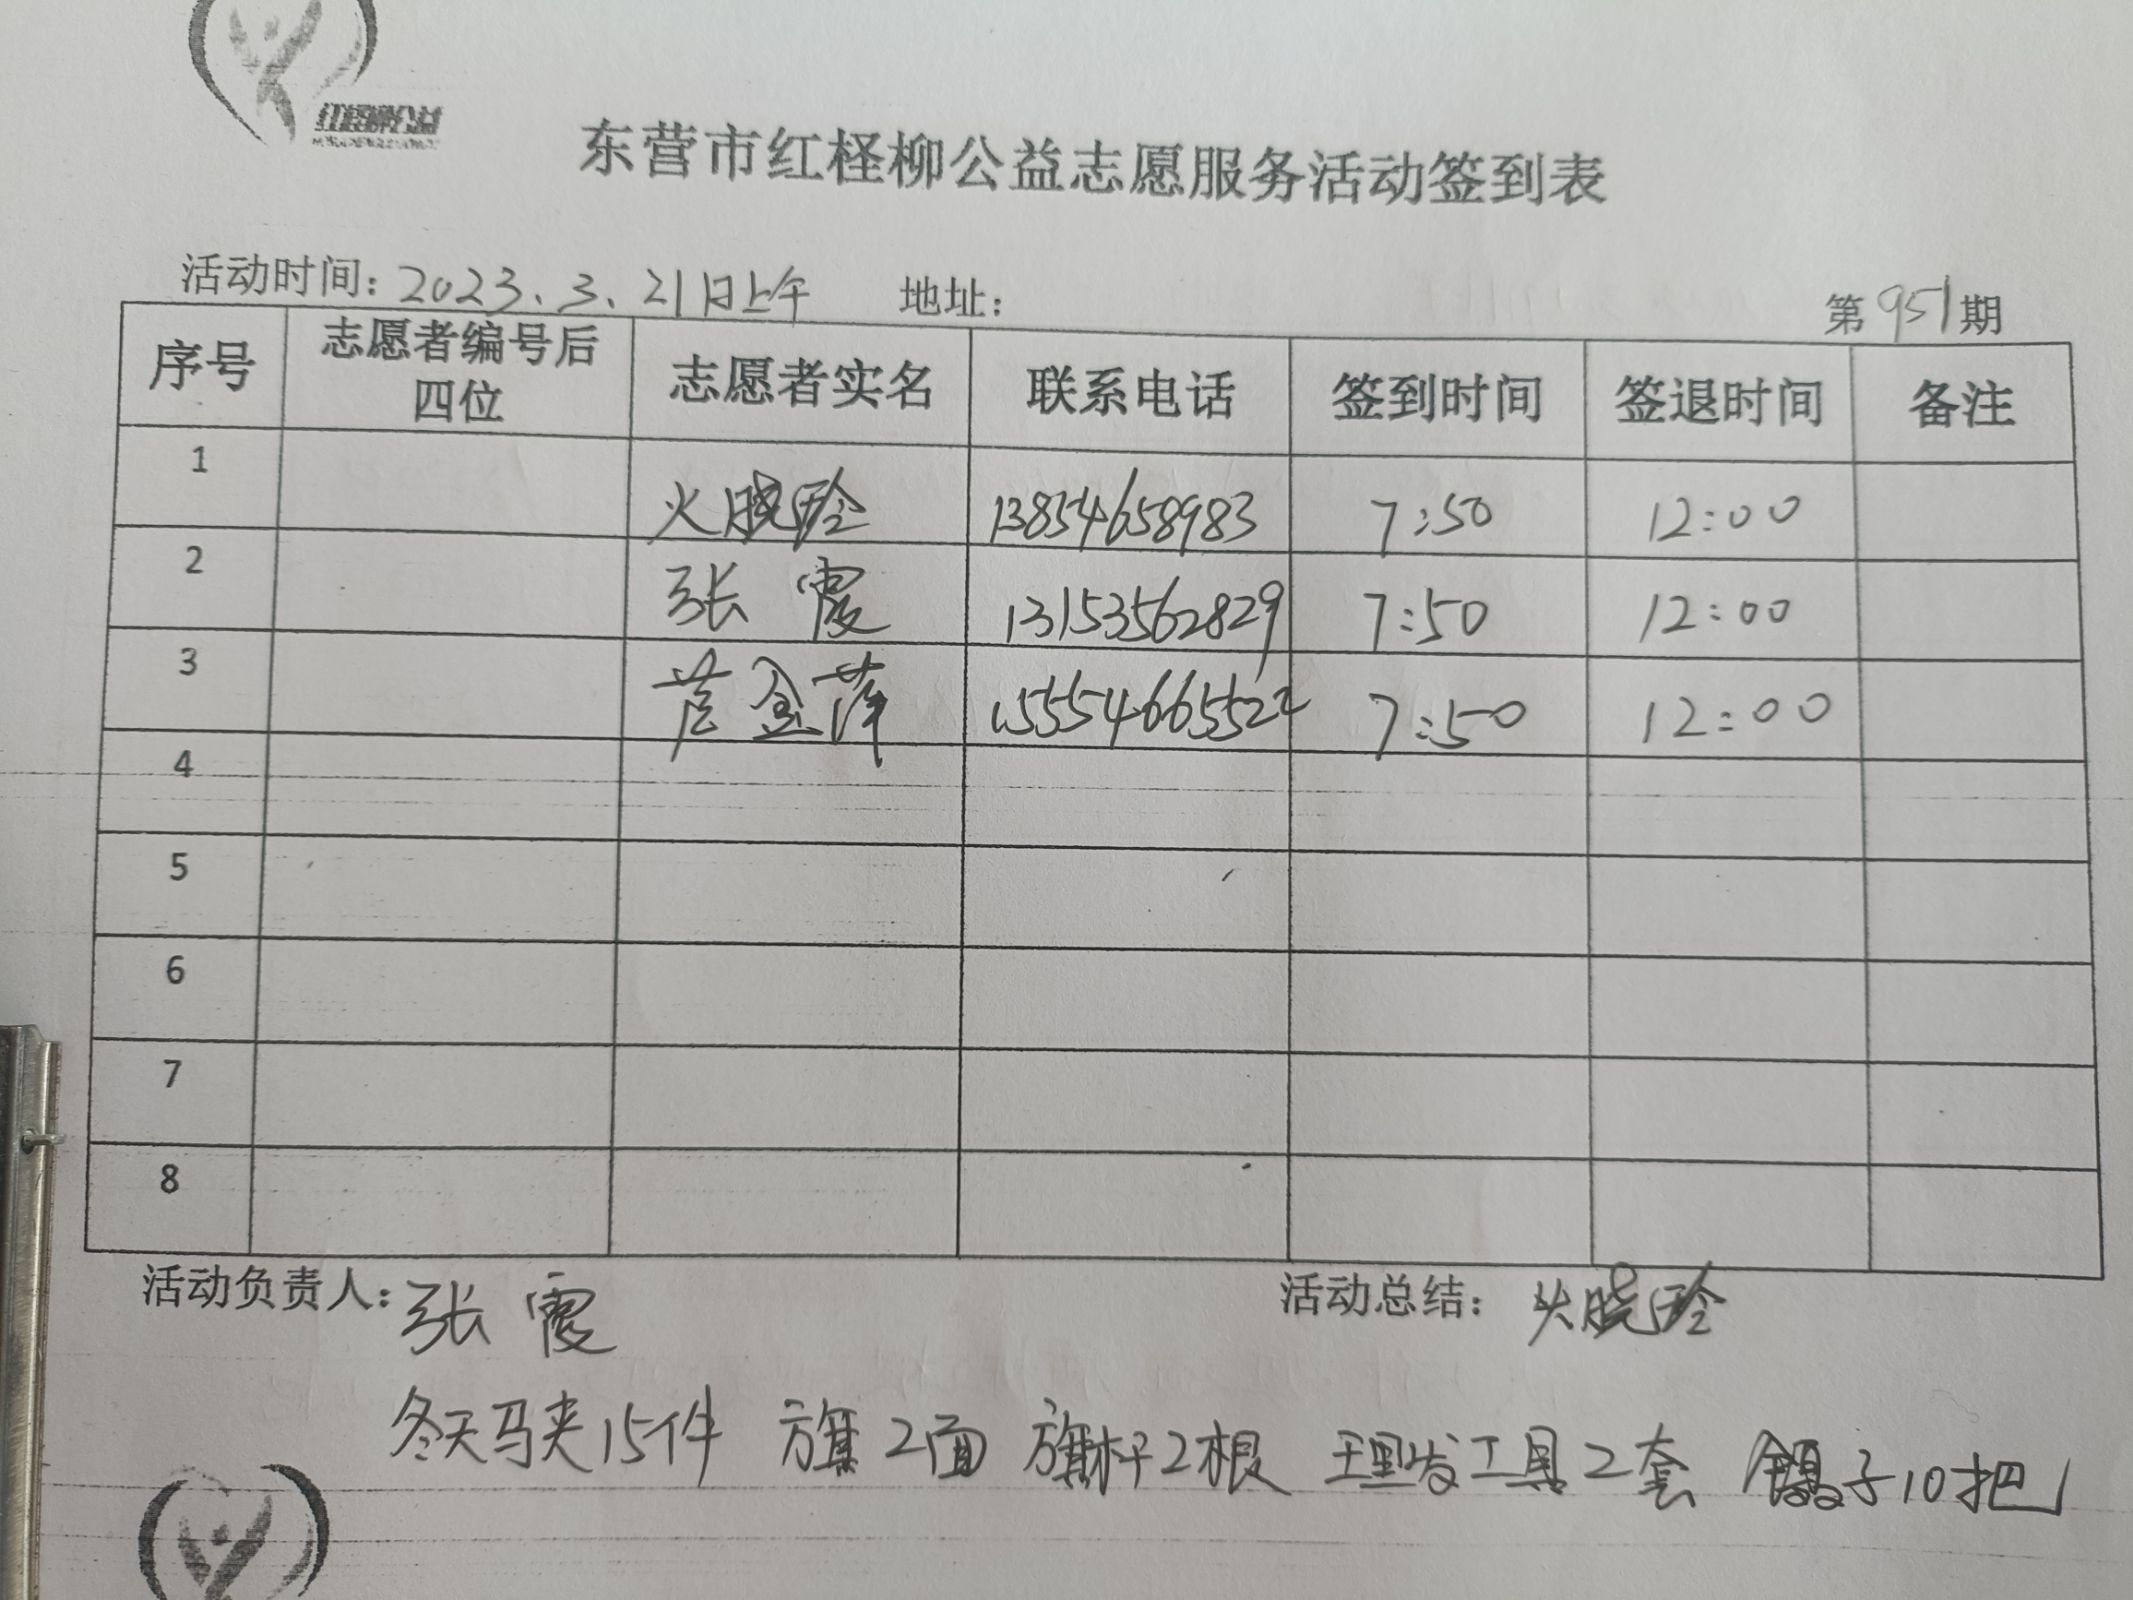 红柽柳公益
东营市红柽柳公益志愿服务活动签到表
活动时间：2023.3.21日上午 地址： 第951期
序号 志愿者编号后四位 志愿者实名 联系电话 签到时间 签退时间 备注
1 火晓玲 13854658983 7:50 12:00
2 张霞 13153562829 7:50 12:00
3 金萍 15554665522 7:50 12:00
4
5
6
7
8
活动负责人：张霞 活动总结：火晓玲
冬天马夹15件 旗2面 旗杆2根 理发工具2套 镊子10把